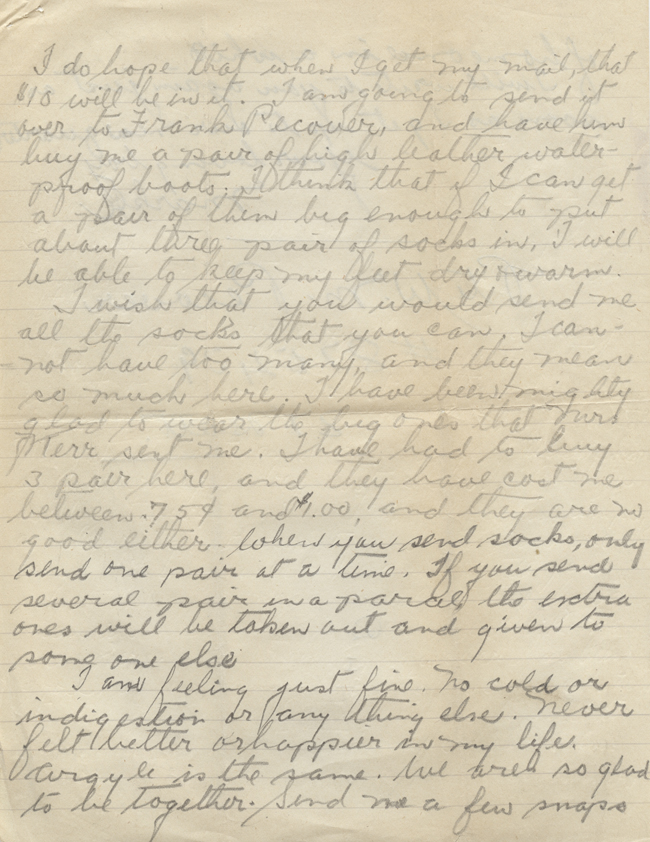 I do hope that when I get my mail, that
$10 will be in it. I am going to send it
over to Frank Pecover, and have him
buy me a pair of high leather water-
proof boots. I think that if I can get
a pair of them big enough to put
about three pair of socks in, I will
be able to keep my feet dry & warm.
I wish that you would send me
all the socks that you can. I can-
not have too many, and they mean
so much here. I have been mighty
glad to wear the big ones that Mrs
Merr sent me. I have had to buy
3 pair here, and they have cost me
between .75¢ and $1.00, and they are no
good either. When you send socks, only
send one pair at a time. If you send
several pair in a parcel the extra
ones will be taken out and given to
some one else
I am feeling just fine. No cold or
indigestion or any thing else. Never
felt better or happier in my life.
Argyle is the same. We are so glad
to be together. Send me a few snaps